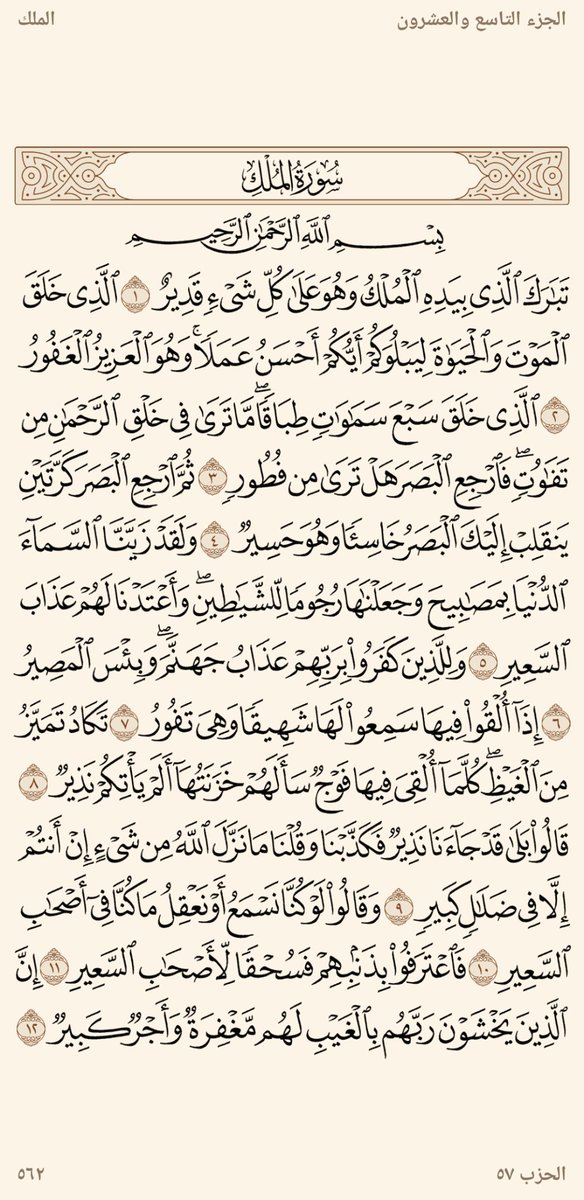 الجزء التاسع والعشرون
الملك
سُورَةُ الْمُلْكِ
بِسْمِ ٱللَّهِ ٱلرَّحْمَٰنِ ٱلرَّحِيمِ
تَبَٰرَكَ ٱلَّذِى بِيَدِهِ ٱلْمُلْكُ وَهُوَ عَلَىٰ كُلِّ شَىْءٍ قَدِيرٌ ١ ٱلَّذِى خَلَقَ
ٱلْمَوْتَ وَٱلْحَيَوٰةَ لِيَبْلُوَكُمْ أَيُّكُمْ أَحْسَنُ عَمَلًا ۚ وَهُوَ ٱلْعَزِيزُ ٱلْغَفُورُ
٢ ٱلَّذِى خَلَقَ سَبْعَ سَمَٰوَٰتٍ طِبَاقًا ۖ مَّا تَرَىٰ فِى خَلْقِ ٱلرَّحْمَٰنِ مِن
تَفَٰوُتٍ ۖ فَٱرْجِعِ ٱلْبَصَرَ هَلْ تَرَىٰ مِن فُطُورٍ ٣ ثُمَّ ٱرْجِعِ ٱلْبَصَرَ كَرَّتَيْنِ
يَنقَلِبْ إِلَيْكَ ٱلْبَصَرُ خَاسِئًا وَهُوَ حَسِيرٌ ٤ وَلَقَدْ زَيَّنَّا ٱلسَّمَآءَ
ٱلدُّنْيَا بِمَصَٰبِيحَ وَجَعَلْنَٰهَا رُجُومًا لِّلشَّيَٰطِينِ ۖ وَأَعْتَدْنَا لَهُمْ عَذَابَ
ٱلسَّعِيرِ ٥ وَلِلَّذِينَ كَفَرُوا۟ بِرَبِّهِمْ عَذَابُ جَهَنَّمَ ۖ وَبِئْسَ ٱلْمَصِيرُ
٦ إِذَآ أُلْقُوا۟ فِيهَا سَمِعُوا۟ لَهَا شَهِيقًا وَهِىَ تَفُورُ ٧ تَكَادُ تَمَيَّزُ
مِنَ ٱلْغَيْظِ ۖ كُلَّمَآ أُلْقِىَ فِيهَا فَوْجٌ سَأَلَهُمْ خَزَنَتُهَآ أَلَمْ يَأْتِكُمْ نَذِيرٌ ٨
قَالُوا۟ بَلَىٰ قَدْ جَآءَنَا نَذِيرٌ فَكَذَّبْنَا وَقُلْنَا مَا نَزَّلَ ٱللَّهُ مِن شَىْءٍ إِنْ أَنتُمْ
إِلَّا فِى ضَلَٰلٍ كَبِيرٍ ٩ وَقَالُوا۟ لَوْ كُنَّا نَسْمَعُ أَوْ نَعْقِلُ مَا كُنَّا فِىٓ أَصْحَٰبِ
ٱلسَّعِيرِ ١٠ فَٱعْتَرَفُوا۟ بِذَنۢبِهِمْ فَسُحْقًا لِّأَصْحَٰبِ ٱلسَّعِيرِ ١١ إِنَّ
ٱلَّذِينَ يَخْشَوْنَ رَبَّهُم بِٱلْغَيْبِ لَهُم مَّغْفِرَةٌ وَأَجْرٌ كَبِيرٌ ١٢
الحزب ٥٧
٥٦٢